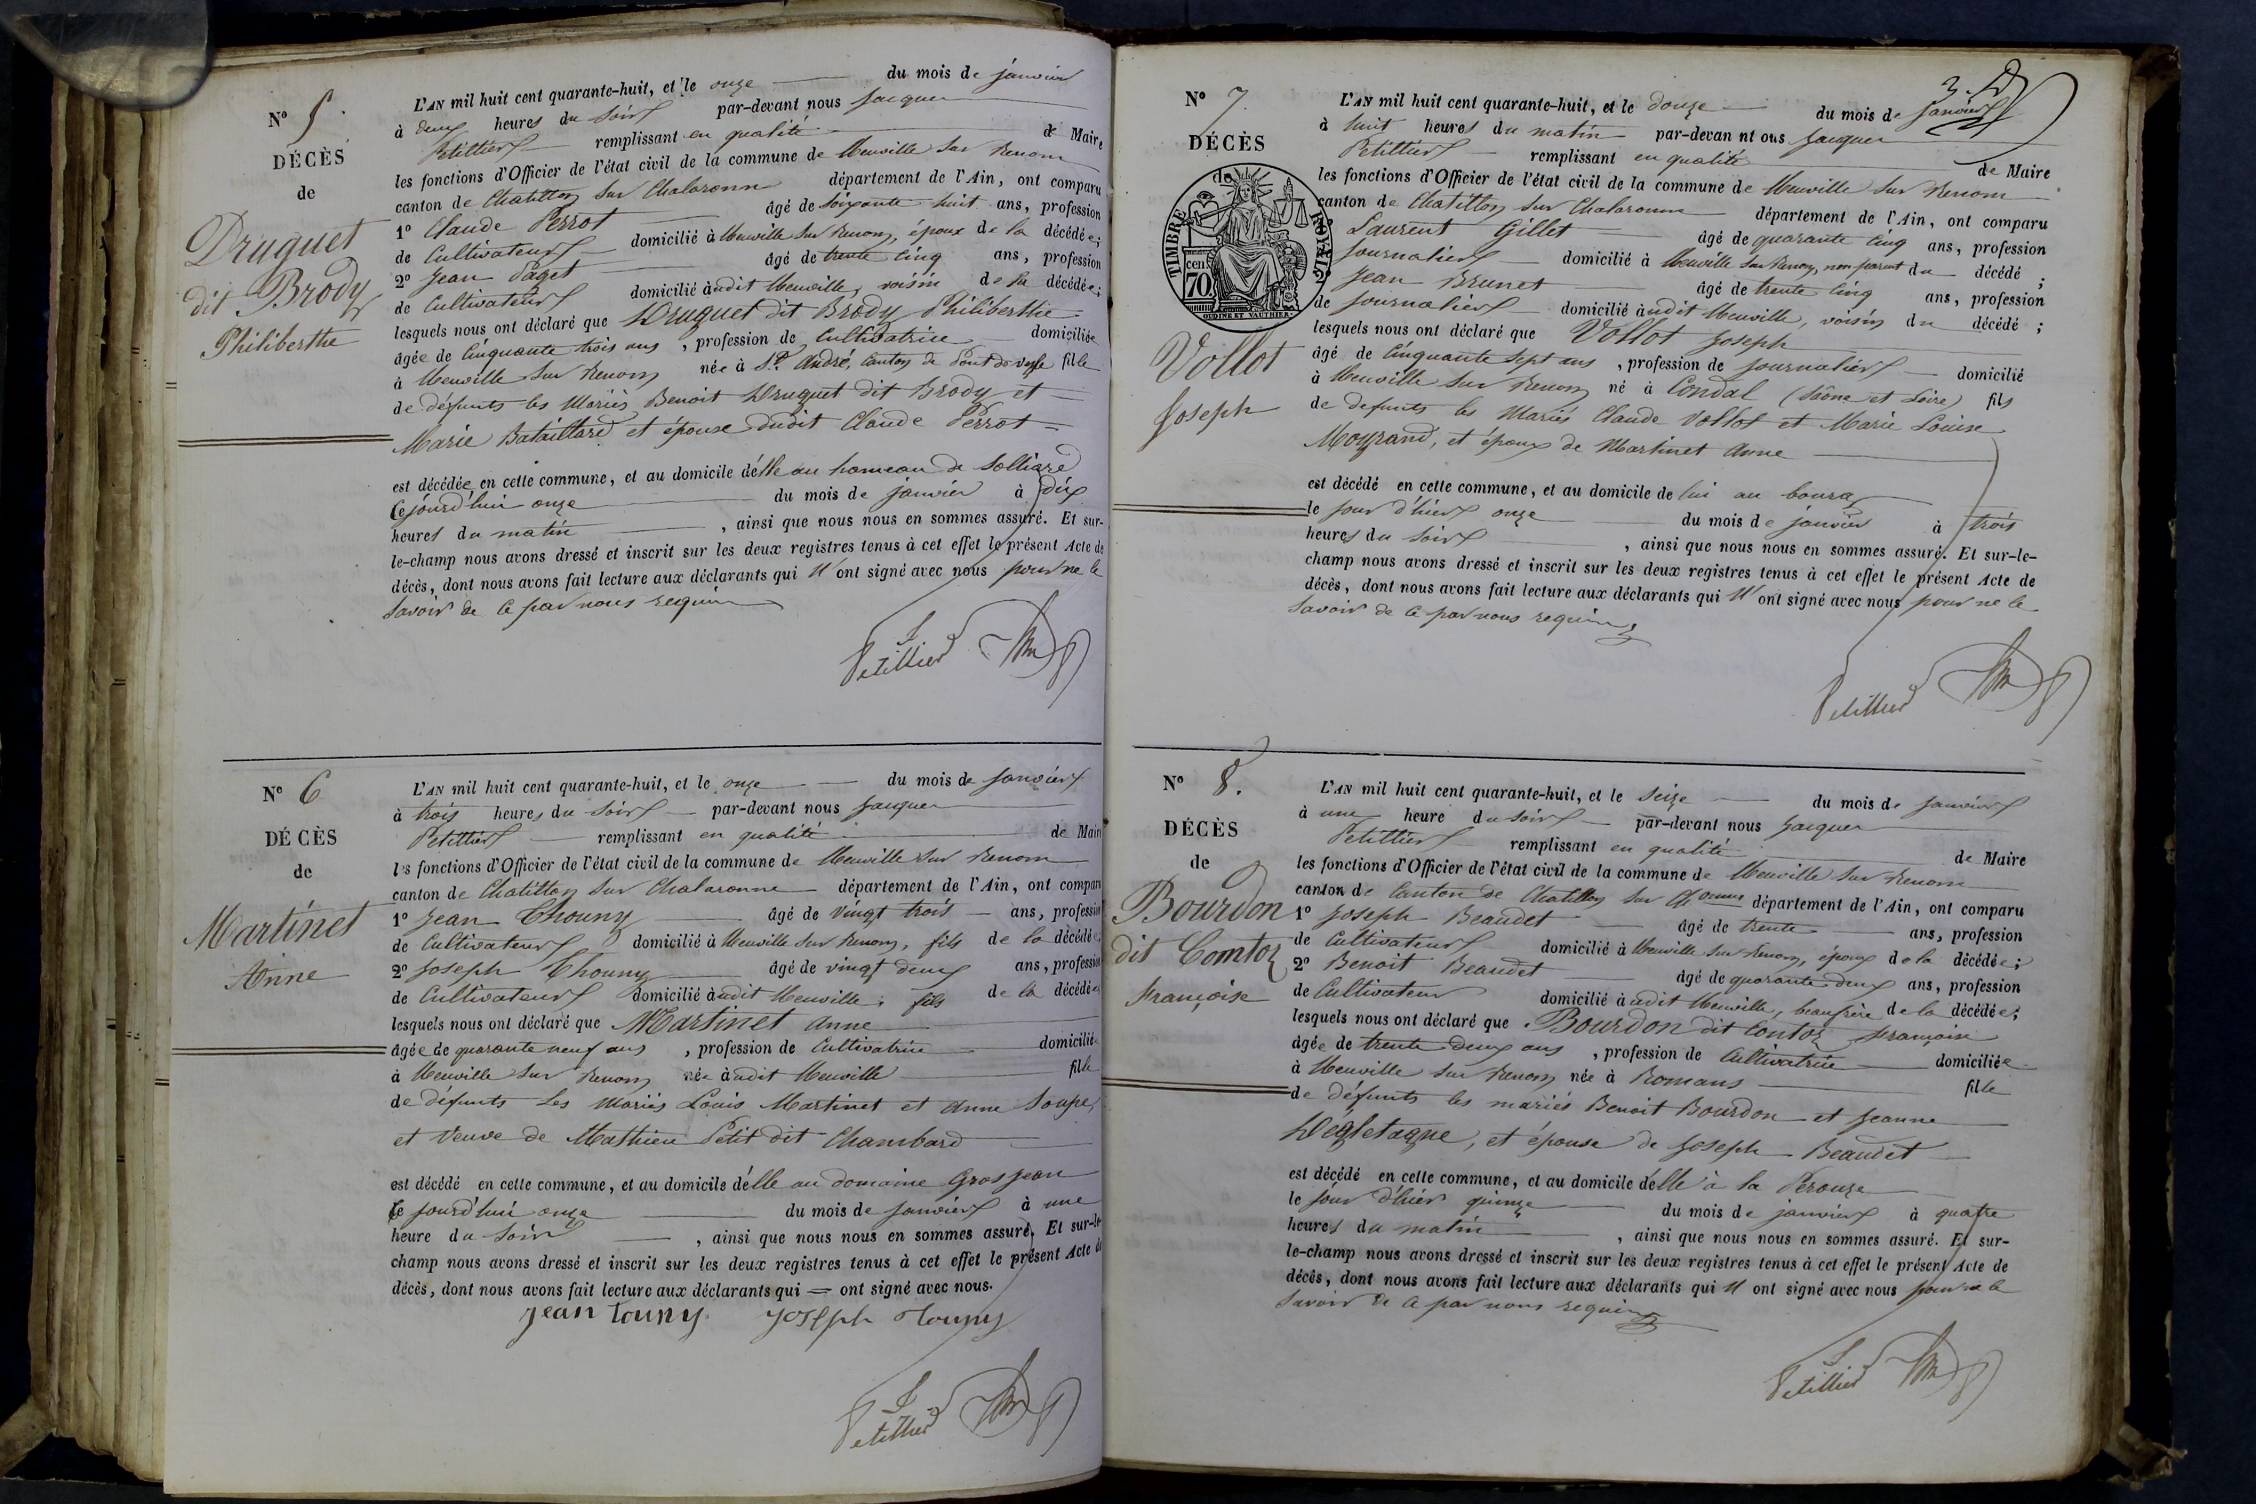 N° 5.
DÉCÈS
de
Druguet
dit Brody
Philiberthe
L'AN mil huit cent quarante-huit, et le onze du mois de janvier
à deux heures du soir par-devant nous Jacques
Petillier remplissant en qualité de Maire
les fonctions d'Officier de l'état civil de la commune de Neuville sur Renom
canton de Chatillon sur Chalaronne département de l'Ain, ont comparu
1° Claude Perrot âgé de soixante huit ans, profession
de Cultivateur domicilié à Neuville sur Renom, époux de la décédée;
2° Jean Paget âgé de trente cinq ans, profession
de Cultivateur domicilié àudit Neuville, voisin de la décédée;
lesquels nous ont déclaré que Druguet dit Brody Philiberthe
âgée de Cinquante trois ans, profession de Cultivatrice domiciliée
à Neuville sur Renom née à St. André, Canton de Pont de vesle fille
de défunts les Mariés Benoit Druguet dit Brody et
Marie Bataillard et épouse dudit Claude Perrot
est décédée en cette commune, et au domicile d'élle au hameau de Solliard
Cejourd'hui onze du mois de janvier à dix
heures du matin, ainsi que nous nous en sommes assuré. Et sur-
le-champ nous avons dressé et inscrit sur les deux registres tenus à cet effet le présent Acte de
décès, dont nous avons fait lecture aux déclarants qui N'ont signé avec nous pour ne le
savoir de ce par nous requis
J Petillier
N° 6
DÉCÈS
de
Martinet
Anne
L'AN mil huit cent quarante-huit, et le onze du mois de Janvier
à trois heures du soir par-devant nous Jacques
Petillier remplissant en qualité de Maire
les fonctions d'Officier de l'état civil de la commune de Neuville sur Renom
canton de Chatillon sur Chalaronne département de l'Ain, ont comparu
1° Jean Thouny âgé de vingt trois ans, profession
de Cultivateur domicilié à Neuville sur Renom, fils de la décédée;
2° Joseph Thouny âgé de vingt deux ans, profession
de Cultivateur domicilié àudit Neuville, fils de la décédée
lesquels nous ont déclaré que Martinet Anne
âgée de quarante neuf ans, profession de Cultivatrice domiciliée
à Neuville sur Renom née àudit Neuville fille
de défunts Les Mariés Louis Martinet et Anne Soupe,
et Veuve de Mathieu Petit dit Chambard
est décédé en cette commune, et au domicile d'élle au domaine Grosjean
Ce jourd'hui onze du mois de janvier à une
heure du soir, ainsi que nous nous en sommes assuré. Et sur-le-
champ nous avons dressé et inscrit sur les deux registres tenus à cet effet le présent Acte de
décès, dont nous avons fait lecture aux déclarants qui = ont signé avec nous.
jean touny joseph touny
J Petillier
3.
N° 7.
DÉCÈS
de
TIMBRE ROYAL
cen 70
OUDINE ET VAUTHIER.
Vollot
Joseph
L'AN mil huit cent quarante-huit, et le douze du mois de janvier
à huit heures du matin par-devan nt ous Jacques
Petillier remplissant en qualité de Maire
les fonctions d'Officier de l'état civil de la commune de Neuville sur Renom
canton de Chatillon sur Chalaronne département de l'Ain, ont comparu
Laurent Gillet âgé de quarante cinq ans, profession
Journalier domicilié à Neuville sur Renom, non parent du décédé;
Jean Brunet âgé de trente cinq ans, profession
de journalier domicilié àudit Neuville, voisin du décédé;
lesquels nous ont déclaré que Vollot Joseph
âgé de Cinquante sept ans, profession de journalier domicilié
à Neuville sur Renom né à Condal (Saône et Loire) fils
de defunts les Mariés Claude Vollot et Marie Louise
Moyrand, et époux de Martinet Anne
est décédé en cette commune, et au domicile de lui au bourg
le jour d'hier onze du mois de janvier à trois
heures du soir, ainsi que nous nous en sommes assuré. Et sur-le-
champ nous avons dressé et inscrit sur les deux registres tenus à cet effet le présent Acte de
décès, dont nous avons fait lecture aux déclarants qui N'ont signé avec nous pour ne le
savoir de ce par nous requis
Petillier
N° 8.
DÉCÈS
de
Bourdon
dit Comtoz
Françoise
L'AN mil huit cent quarante-huit, et le seize du mois de janvier
à une heure du soir par-devant nous Jacques
Petillier remplissant en qualité de Maire
les fonctions d'Officier de l'état civil de la commune de Neuville sur Renom
canton de Canton de Chatillon sur Ch.onne département de l'Ain, ont comparu
1° Joseph Beaudet âgé de trente ans, profession
de Cultivateur domicilié à Neuville sur Renom, époux de la décédée;
2° Benoit Beaudet âgé de quarante deux ans, profession
de Cultivateur domicilié àudit Neuville, beaufrère de la décédée;
lesquels nous ont déclaré que Bourdon dit Contoz Françoise
âgée de trente deux ans, profession de Cultivatrice domiciliée
à Neuville sur Renom née à Romans fille
de défunts les mariés Benoit Bourdon et Jeanne
Dégletagne, et épouse de Joseph Beaudet
est décédé en cette commune, et au domicile d'élle à la Pérouze
le jour d'hier quinze du mois de janvier à quatre
heures du matin, ainsi que nous nous en sommes assuré. Et sur-
le-champ nous avons dressé et inscrit sur les deux registres tenus à cet effet le présent Acte de
décès, dont nous avons fait lecture aux déclarants qui N ont signé avec nous pour ne le
savoir de ce par nous requis
J Petillier